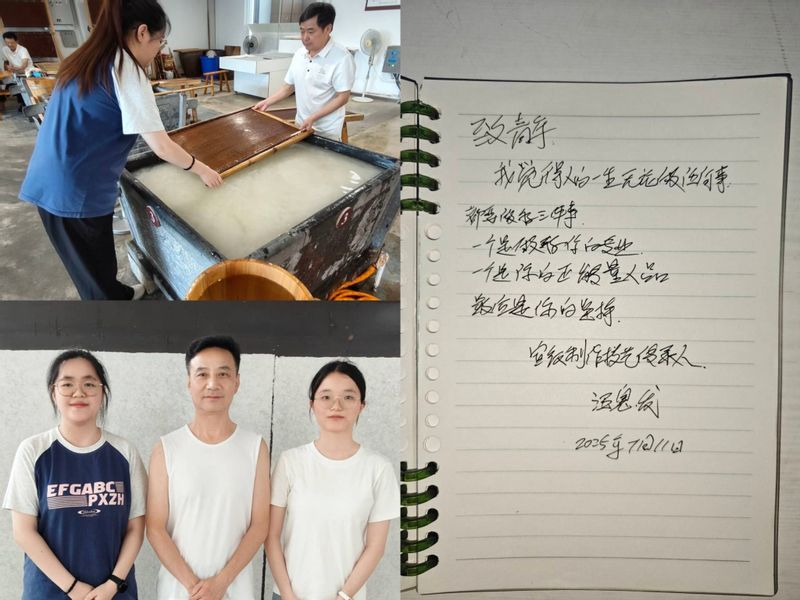 EFGABC
PXZH
致青年
我觉得人的一生无论做任何事
都要做好三件事
一个是做好你的专业
一个是你的正能量人品
最后是你的坚持
宣纸制作技艺传承人
2025年7月11日